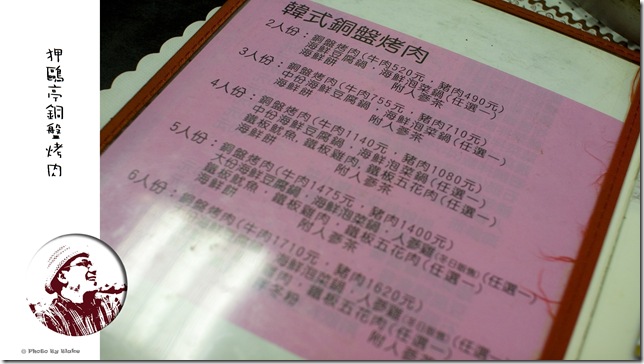 押鷗亭銅盤烤肉
© Photo By Blake
韓式銅盤烤肉
2人份：銅盤烤肉(牛肉520元，豬肉490元)
海鮮豆腐鍋，海鮮泡菜鍋(任選一)
海鮮餅 附人蔘茶
3人份：銅盤烤肉(牛肉755元，豬肉710元)
中份海鮮豆腐鍋，海鮮泡菜鍋(任選一)
海鮮餅 附人蔘茶
4人份：銅盤烤肉(牛肉1140元，豬肉1080元)
中份海鮮豆腐鍋，海鮮泡菜鍋(任選一)
鐵板魷魚，鐵板雞肉，鐵板五花肉(任選一)
海鮮餅 附人蔘茶
5人份：銅盤烤肉(牛肉1475元，豬肉1400元)
大份海鮮豆腐鍋，海鮮泡菜鍋，人蔘雞(任選一)
鐵板魷魚，鐵板雞肉，鐵板五花肉(任選一)
海鮮餅 附人蔘茶
6人份：銅盤烤肉(牛肉1710元，豬肉1620元)
海鮮泡菜鍋，人蔘雞(任選一)
鐵板五花肉(任選一)
冬粉 (任選一)
附人蔘茶